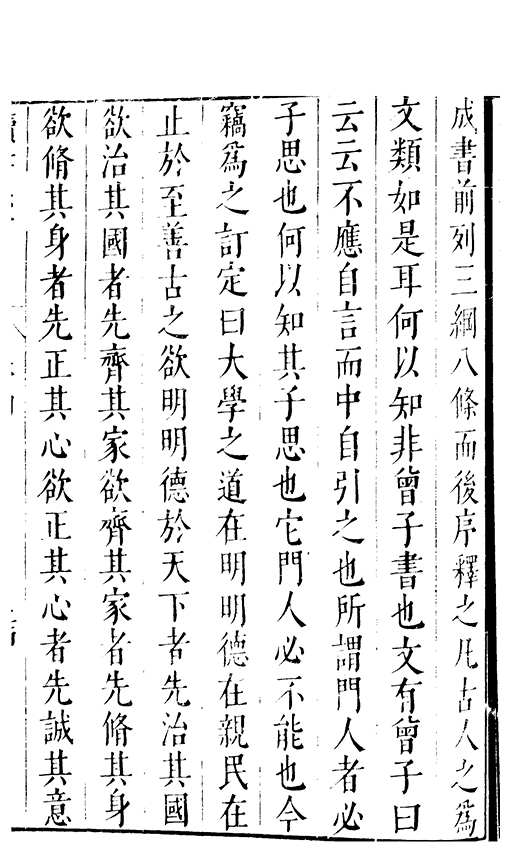 成書前列三綱八條而後序釋之凡古人之爲
文類如是耳何以知非曾子書也文有曾子曰
云云不應自言而中自引之也所謂門人者必
子思也何以知其子思也它門人必不能也今
竊爲之訂定曰大學之道在明明德在親民在
止於至善古之欲明明德於天下者先治其國
欲治其國者先齊其家欲齊其家者先脩其身
欲脩其身者先正其心欲正其心者先誠其意